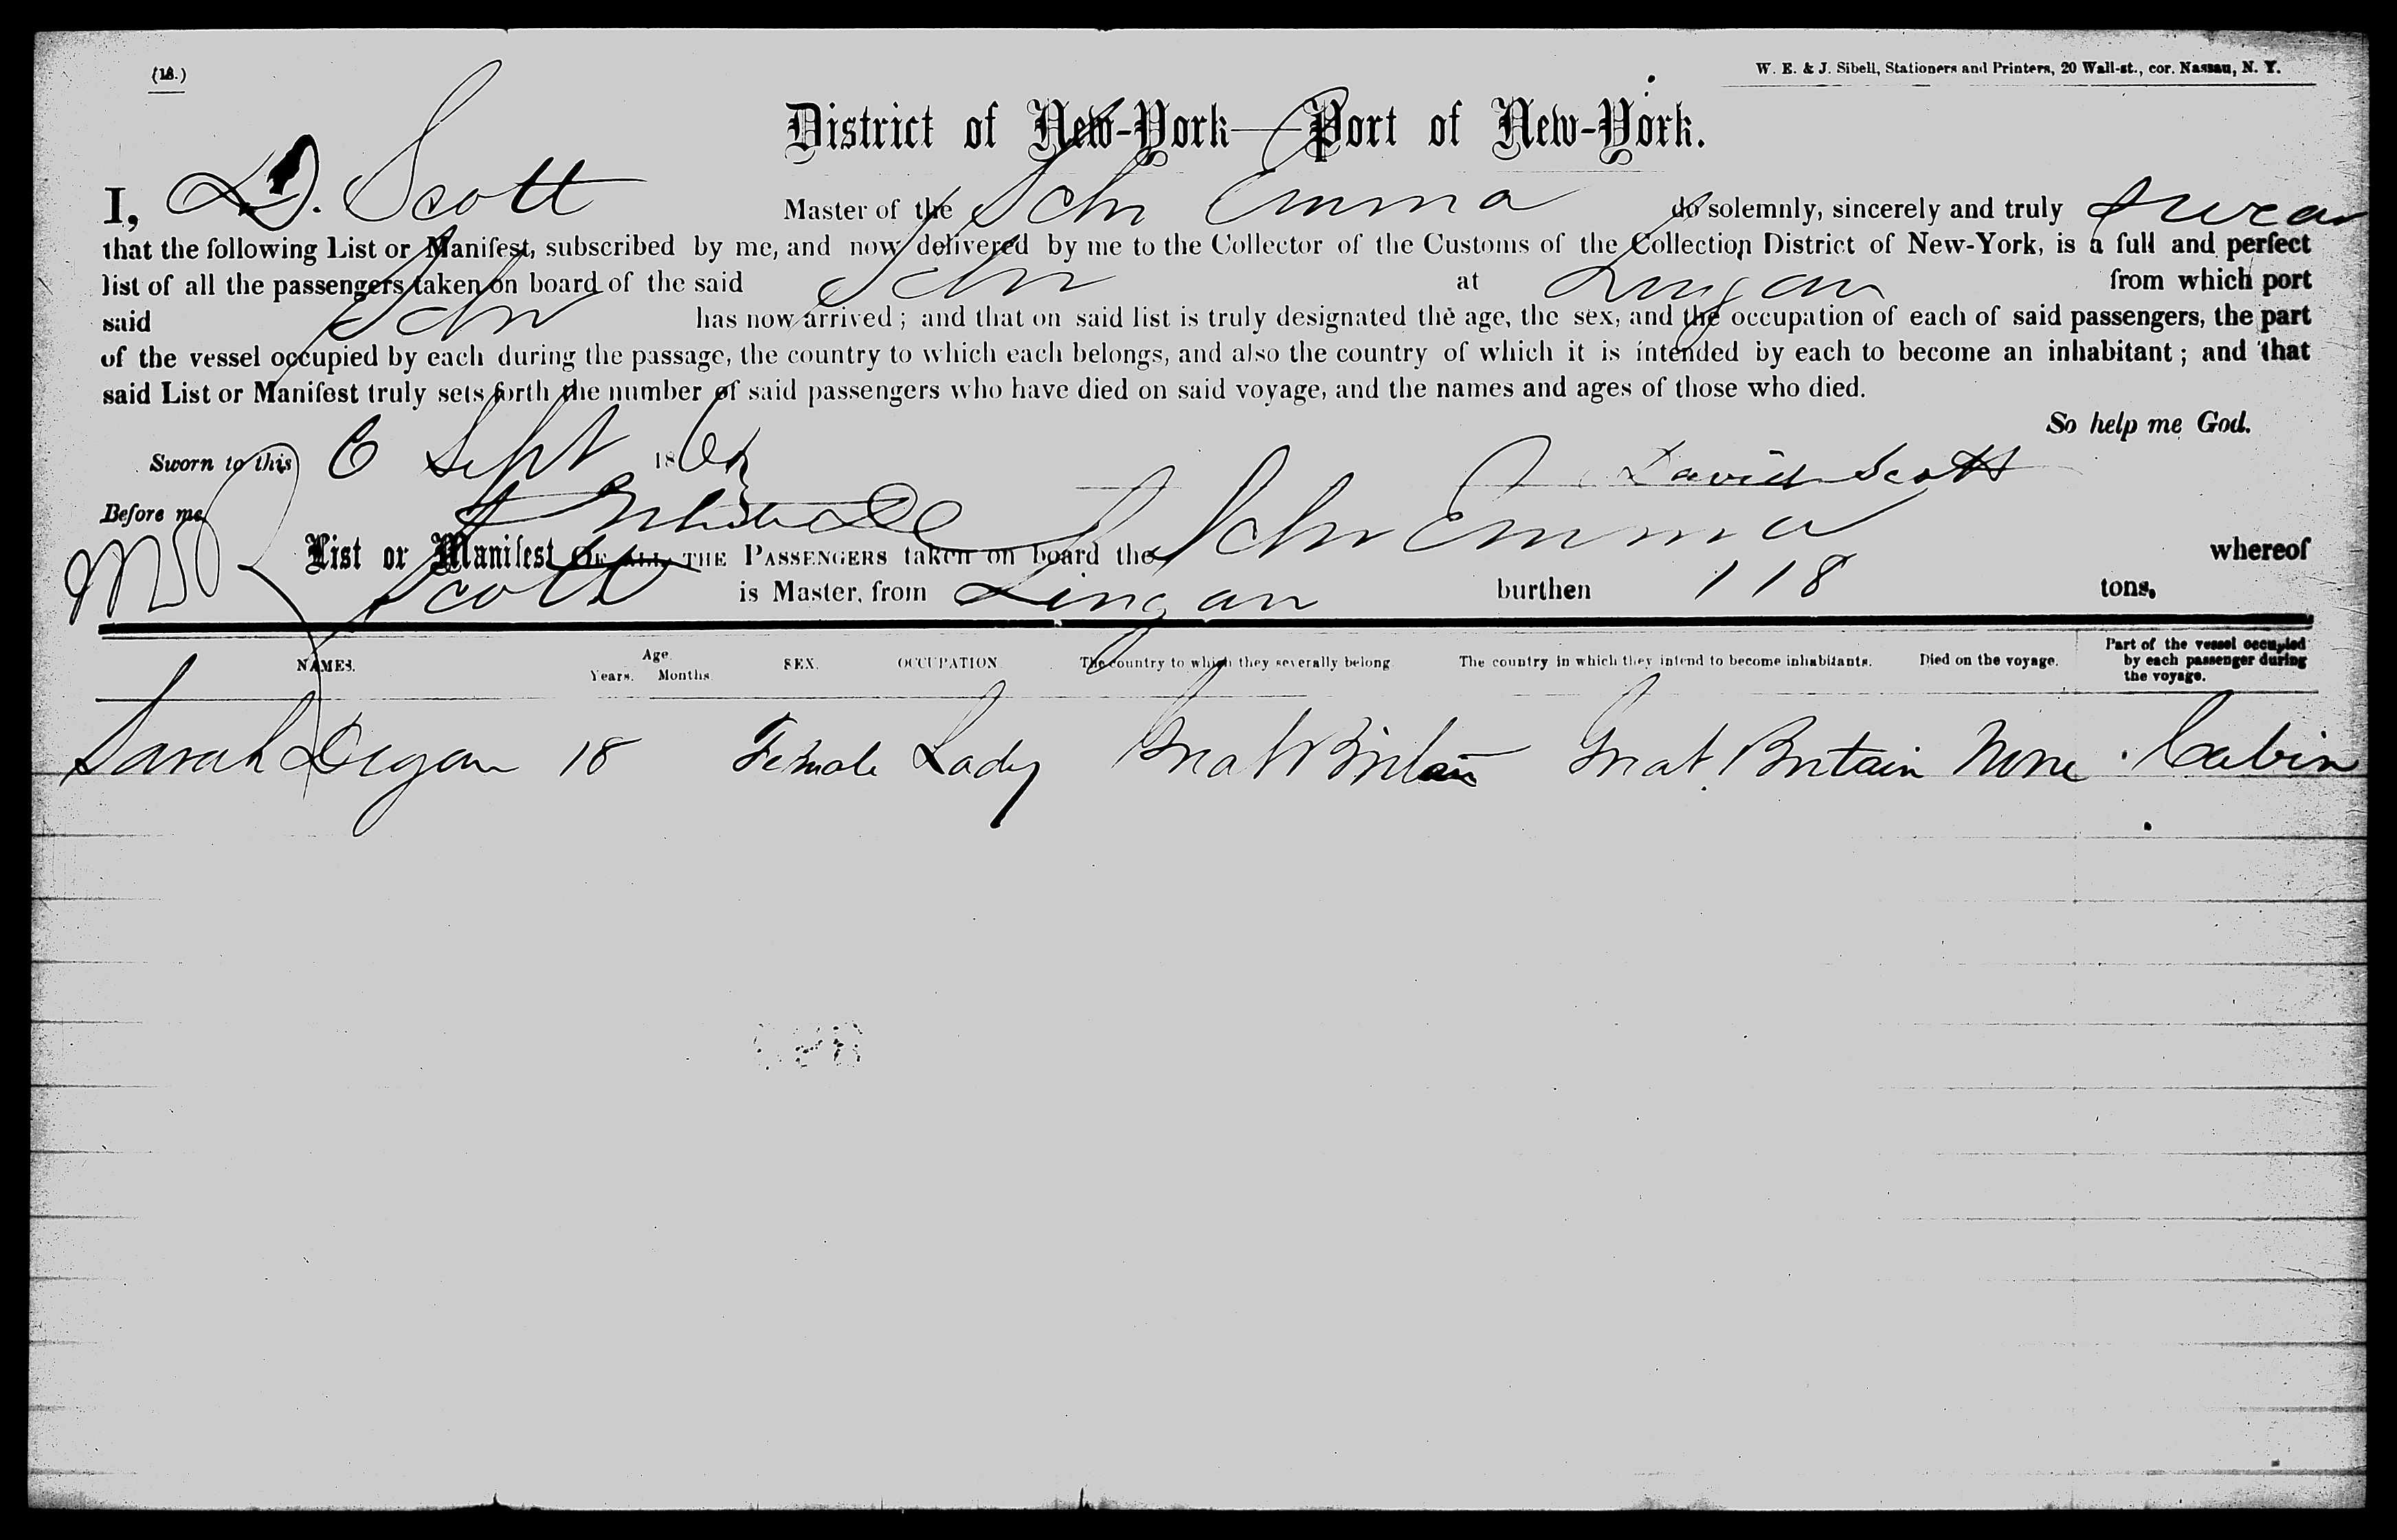 (18.)
W. E. & J. Sibell, Stationers and Printers, 20 Wall-st., cor. Nassau, N. Y.
District of New-York—Port of New-York.
I, D. Scott Master of the Schr Emma do solemnly, sincerely and truly swear
that the following List or Manifest, subscribed by me, and now delivered by me to the Collector of the Customs of the Collection District of New-York, is a full and perfect
list of all the passengers taken on board of the said Schr at Lingan from which port
said Schr has now arrived; and that on said list is truly designated the age, the sex, and the occupation of each of said passengers, the part
of the vessel occupied by each during the passage, the country to which each belongs, and also the country of which it is intended by each to become an inhabitant; and that
said List or Manifest truly sets forth the number of said passengers who have died on said voyage, and the names and ages of those who died.
So help me God.
Sworn to this 6 Sept 186
David Scott
Before me
List or Manifest OF ALL THE PASSENGERS taken on board the Schr Emma whereof
Scott is Master, from Lingan burthen 118 tons.
NAMES. Age Years. Months. SEX. OCCUPATION. The country to which they severally belong. The country in which they intend to become inhabitants. Died on the voyage. Part of the vessel occupied by each passenger during the voyage.
Sarah Degan 18 Female Lady Great Britain Great Britain None Cabin